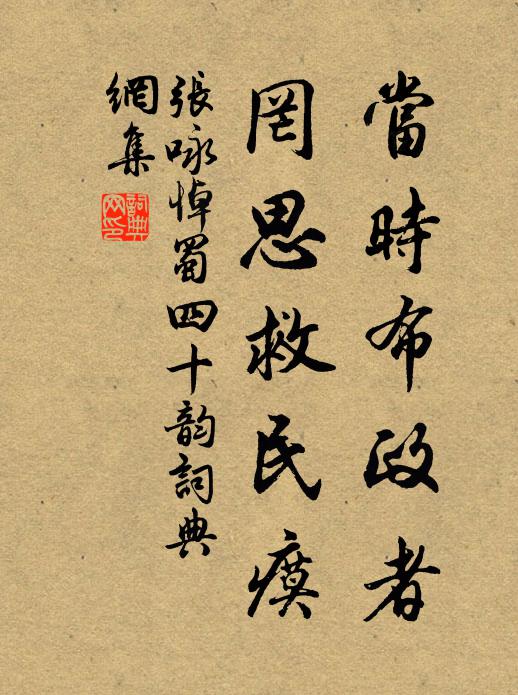 當時布政者
罔思救民瘼
張咏悼蜀四十韵詞典
網集
詞典
网印